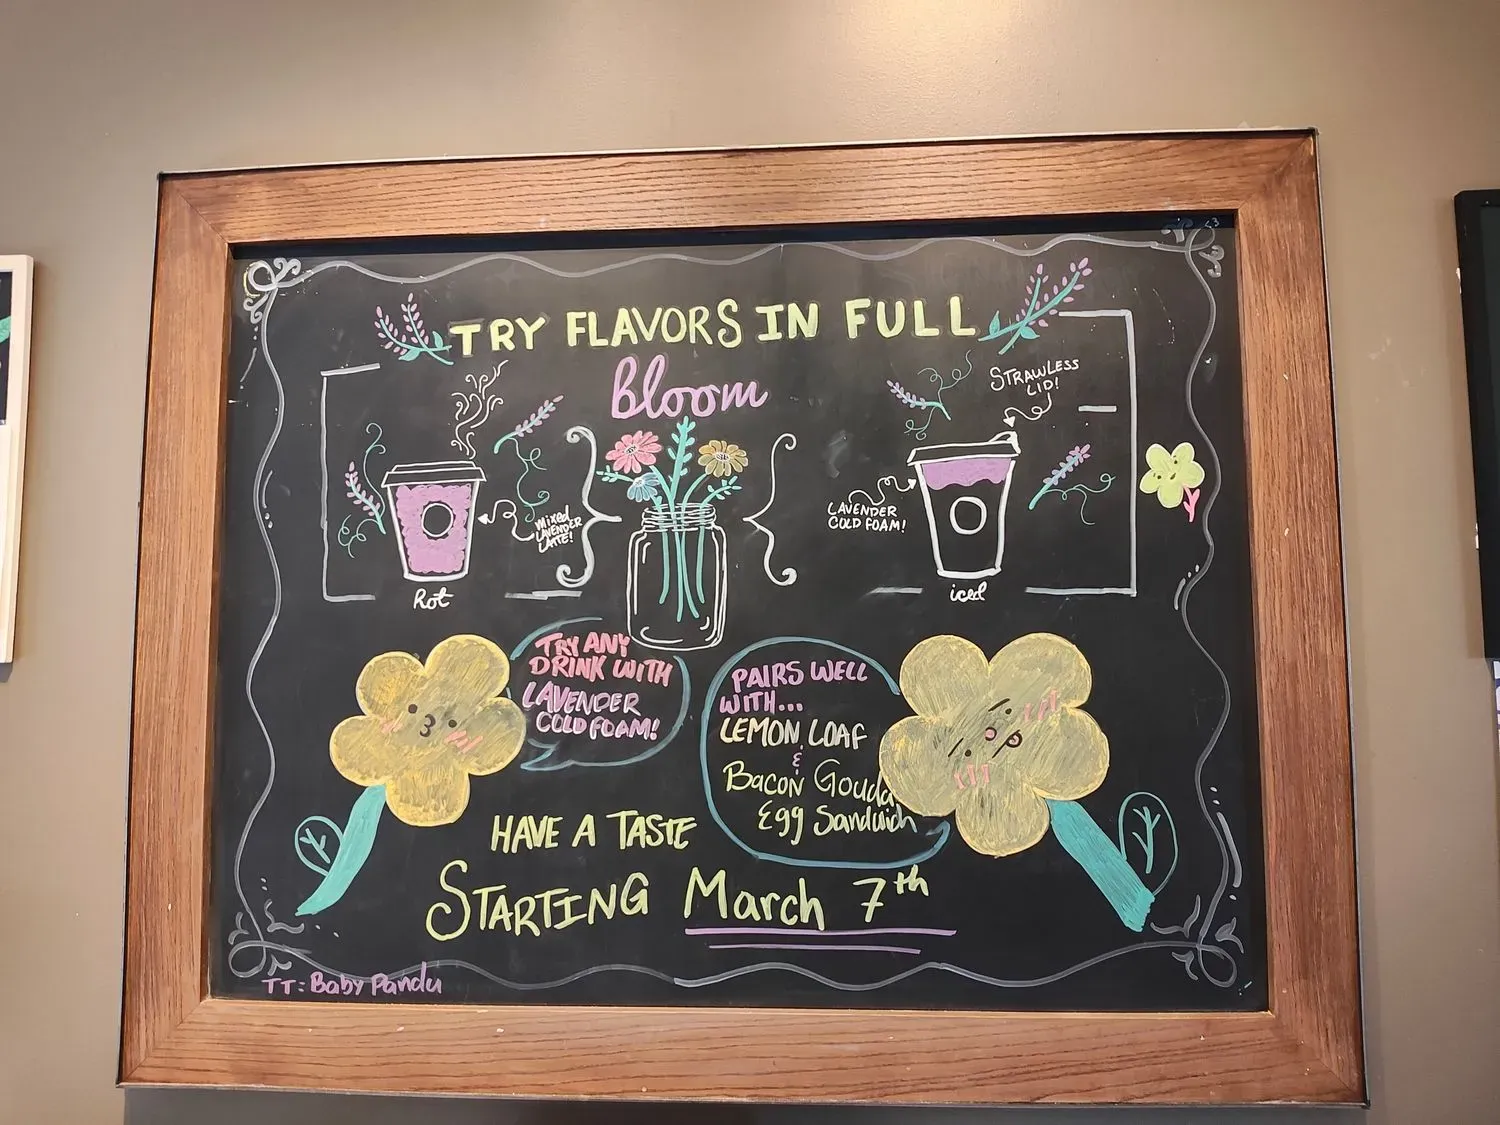 TRY FLAVORS IN FULL
Bloom
STRAWLESS
LID!
MIXED
LAVENDER
LATTE!
LAVENDER
COLD FOAM!
Hot
iced
TRY ANY
DRINK WITH
LAVENDER
COLD FOAM!
PAIRS WELL
WITH...
LEMON LOAF
&
BACON Gouda
Egg Sandwich
HAVE A TASTE
STARTING March 7th
TT: Baby Pandu